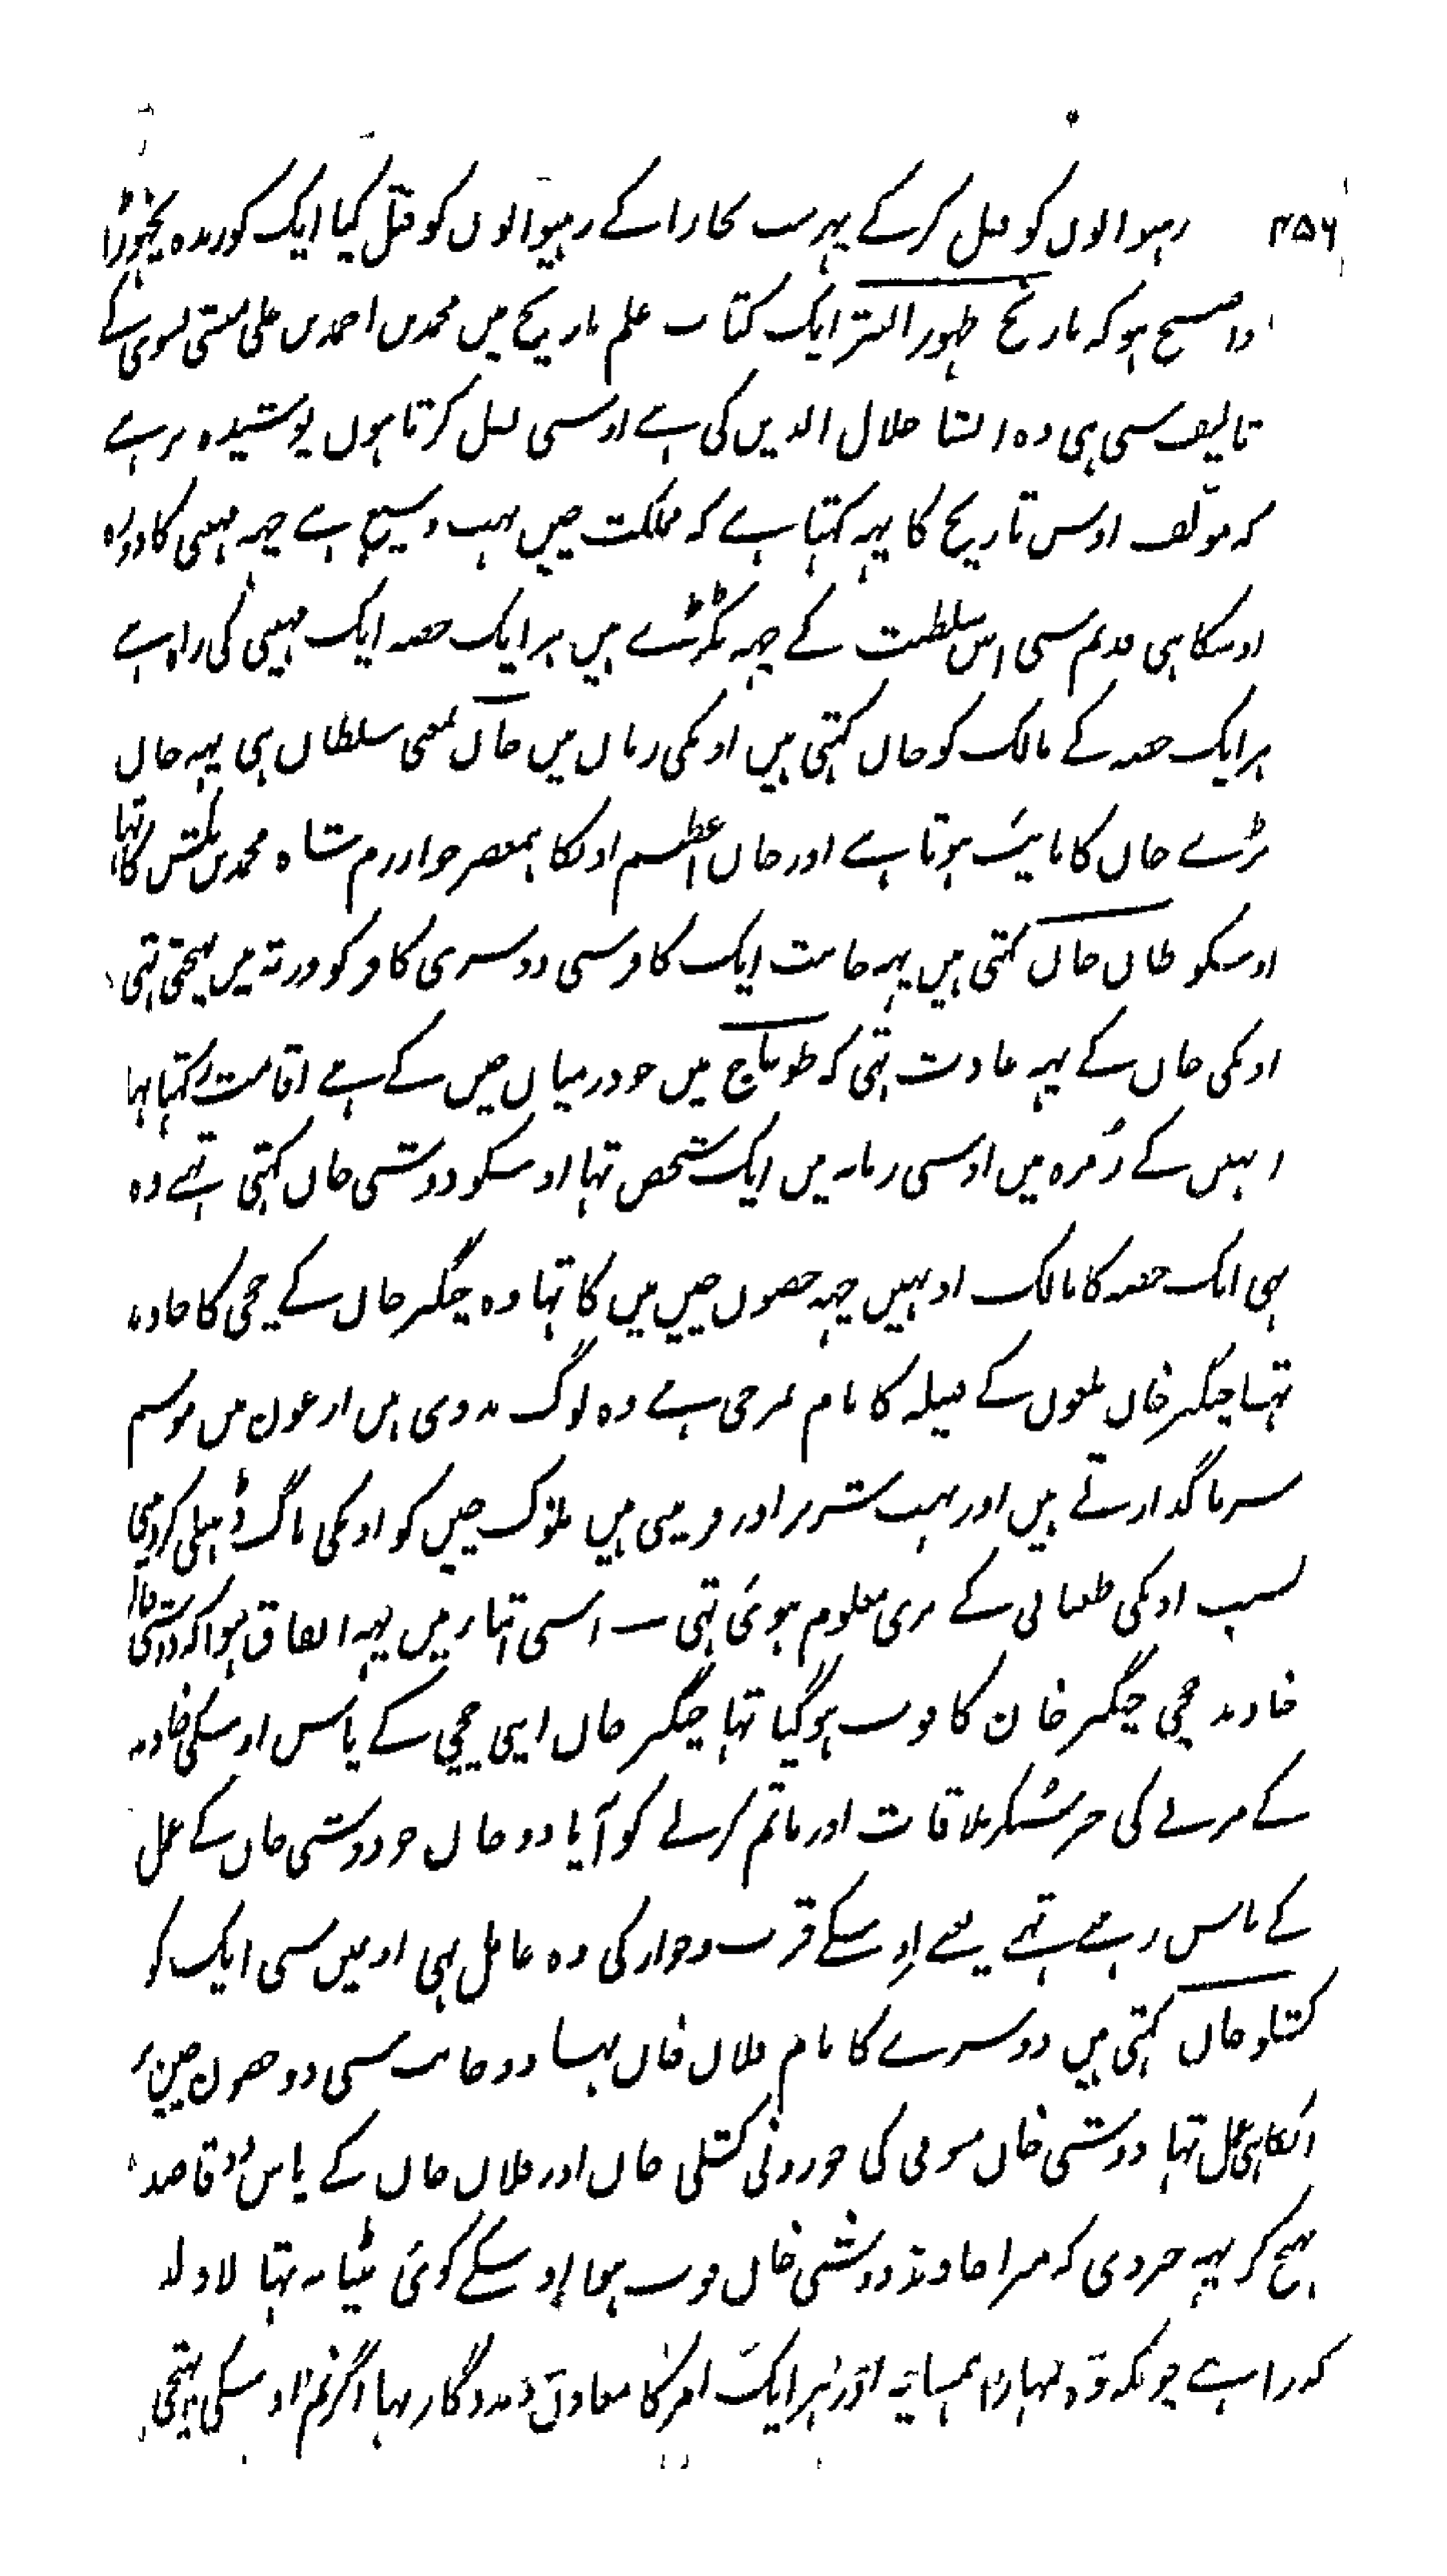 ۴۵۶ رہنوالوں کو قتل کرکے پہرست بخارا کے رہنیوالوں کو قتل کیا ایک کو زندہ نچھوڑا
واضح ہو کہ تاریخ ظہور التتر ایک کتاب علم تاریخ میں محمد بن احمد بن علی منشی نسوی کے
تالیف سی ہی وہ انشا جلال الدین کی ہے اوسی نقل کرتا ہوں پوشیدہ نرہے
کہ مؤلف اوس تاریخ کا یہہ کہتا ہے کہ مملکت چین بہت وسیع ہے چہہ مہینی کا دورہ
اوسکا ہی قدیم سی اس سلطنت کے چہہ ٹکڑے ہیں ہر ایک حصہ ایک مہینی کی راہ ہے
ہر ایک حصہ کے مالک کو خان کہتی ہیں اونکی زبان میں خان بمعنی سلطان ہی یہہ خان
بڑے خان کا نایب ہوتا ہے اور خان اعظم اونکا ہمعصر خوارزم شاہ محمد بن تکش کا تہا
اوسکو طان خان کہتی ہیں یہہ خانیت ایک کافر سی دوسری کافر کو ورثہ میں پہنچتی تہی
اونکی خان کے یہہ عادت تہی کہ طوغاج میں جو درمیان چین کے ہے اقامت رکہتا تہا
انہیں کے زمرہ میں اوسی زمانہ میں ایک شخص تہا اوسکو دوشی خان کہتی تہے وہ
بہی ایک حصہ کا مالک اونہیں چہہ حصوں چین میں کا تہا وہ چنگیز خان کے چچی کا خاوند
تہا چنگیز خان ملعون کے قبیلہ کا نام تمرجی ہے وہ لوگ بدوی ہیں ارغون میں موسم
سرما گذارتے ہیں اور بہت شریر اور فریبی ہیں ملوک چین کو اونکی باگ ڈہیلی کردینی
بسبب اونکی طغیانی کے بری معلوم ہوئی تہی اسی اثنار میں یہہ اتفاق ہوا کہ دوشی خان
خاوند چچی چنگیز خان کا فوت ہوگیا تہا چنگیز خان اپنی چچی کے پاس اوسکی خاوند
کے مرنے کی خبر سنکر ملاقات اور ماتم کرنے کو آیا دو خان جو دوشی خان کے عمل
کے پاس رہتے تہے یعنے اوسکے قرب و جوار کی وہ عامل تہی اونمیں سی ایک کو
کشلو خان کہتی ہیں دوسرے کا نام فلان خان تہا دو جانب سی دو حصوں چین پر
انکا ہی عمل تہا دوشی خان متوفی کی جورو نی کشلی خان اور فلان خان کے پاس قاصد
بہیج کر یہہ خبر دی کہ میرا خاوند دوشی خان فوت ہوا اوسکے کوئی بیٹا نہ تہا لاولد
گذرا ہے چونکہ وہ تمہارا ہمسایہ اور ہر ایک امر کا معاون و مددگار تہا اگر تم اوسکی بہتیجی